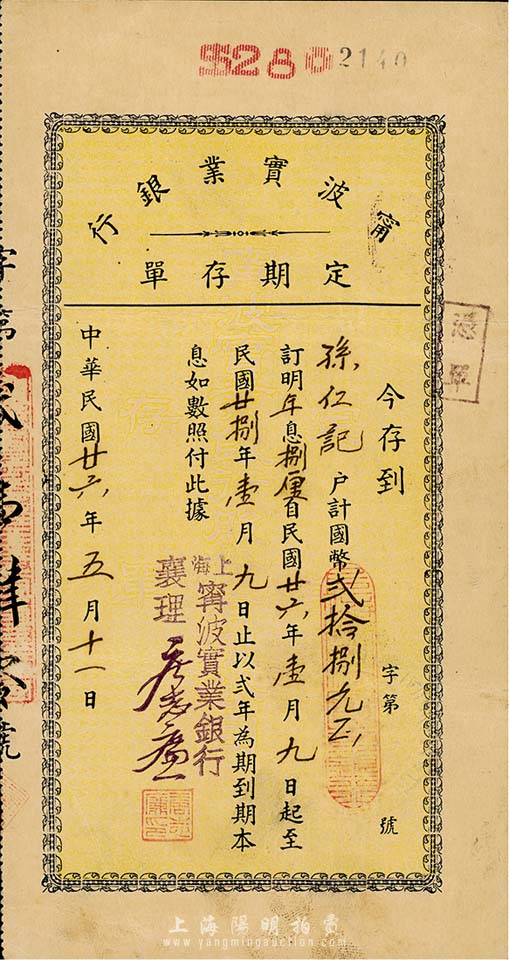 $280 2140
甯波實業銀行
定期存單
憑單
今存到 字第 號
孫仁記户計國幣弍拾捌元正
訂明年息捌厘自民國廿六年壹月九日起至
民國廿捌年壹月九日止以弍年為期到期本
息如數照付此據
上海甯波實業銀行
襄理
中華民國廿六年五月十一日
字第
號
上海陽明拍賣
www.yangmingauction.com